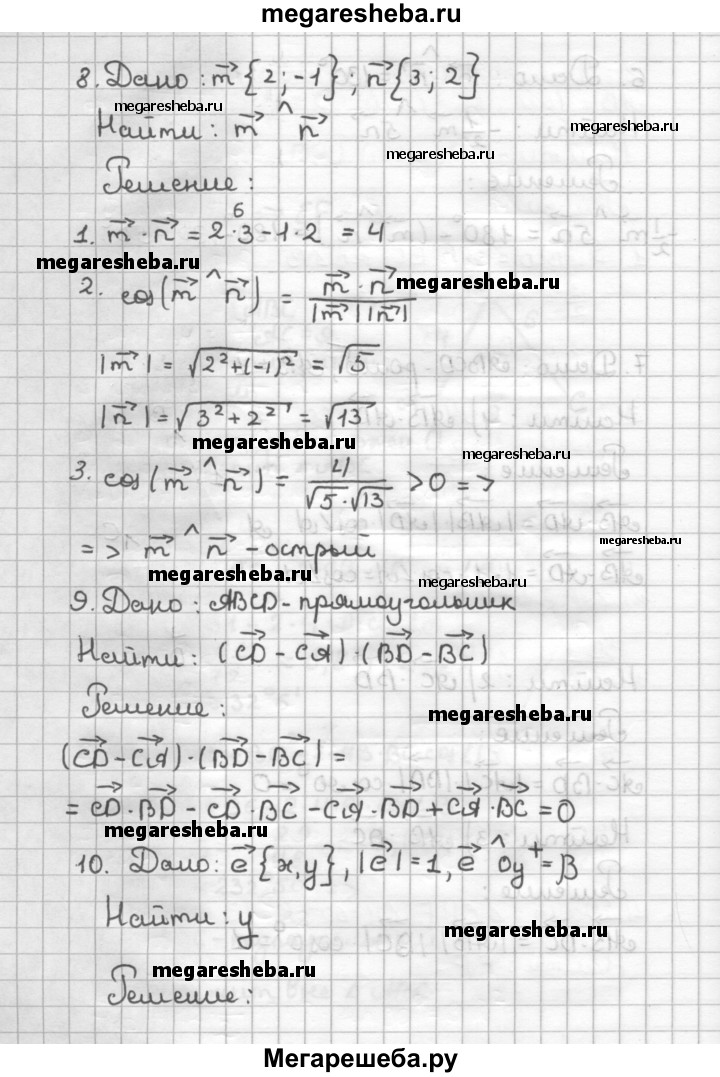 megaresheba.ru
8. Дано: m⃗ {2; -1}; n⃗ {3; 2}
megaresheba.ru
Найти: m⃗ ^ n⃗
megaresheba.ru
megaresheba.ru
Решение:
6
1. m⃗ · n⃗ = 2·3 - 1·2 = 4
megaresheba.ru
2. cos(m⃗ ^ n⃗) = m⃗ · n⃗ / |m⃗| |n⃗|
megaresheba.ru
|m⃗| = √(2² + (-1)²) = √5
|n⃗| = √(3² + 2²) = √13
megaresheba.ru
megaresheba.ru
3. cos(m⃗ ^ n⃗) = 4 / √5 · √13 > 0 =>
megaresheba.ru
=> m⃗ ^ n⃗ - острый
megaresheba.ru
megaresheba.ru
9. Дано: ABCD - прямоугольник
Найти: (CD⃗ - CA⃗) · (BD⃗ - BC⃗)
Решение:
megaresheba.ru
(CD⃗ - CA⃗) · (BD⃗ - BC⃗) =
= CD⃗ · BD⃗ - CD⃗ · BC⃗ - CA⃗ · BD⃗ + CA⃗ · BC⃗ = 0
megaresheba.ru
10. Дано: e⃗ {x, y}, |e⃗| = 1, e⃗ ^ Oy⁺ = β
Найти: y
megaresheba.ru
megaresheba.ru
Решение:
Мегарешеба.ру